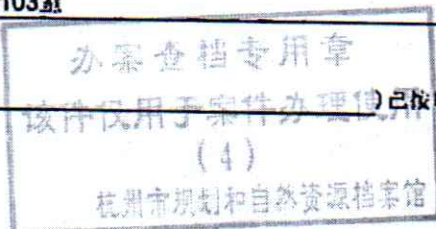 103室
办案查档专用章
)已按
该件仅用于案件办理使用
(4)
杭州市规划和自然资源档案馆